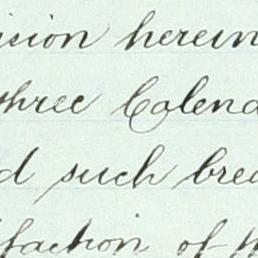 ision herein
three Calend
d such brea
faction of